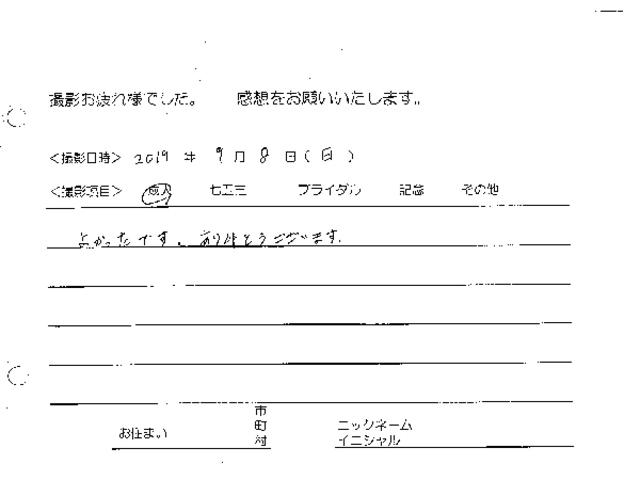 撮影お疲れ様でした。　感想をお願いいたします。
<撮影日時> 2019 年 9 月 8 日(日)
<撮影項目> 成人 七五三 ブライダル 記念 その他
よかったです。ありがとうございます。
お住まい 市町村 ニックネーム イニシャル